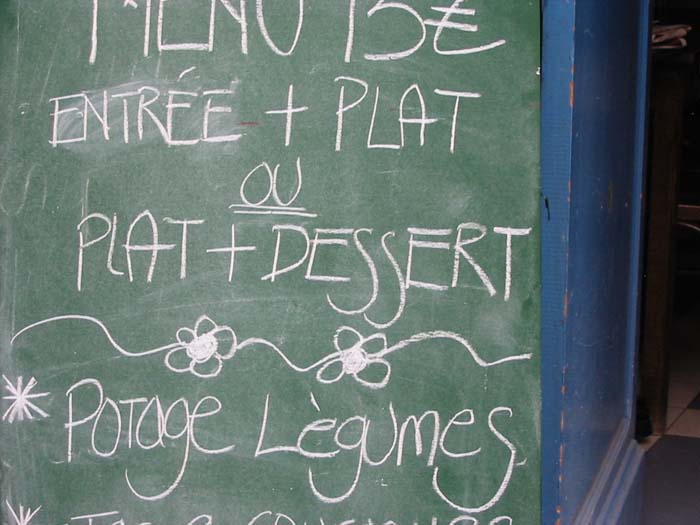 MENU 15€
ENTRÉE + PLAT
OU
PLAT + DESSERT
* Potage Légumes